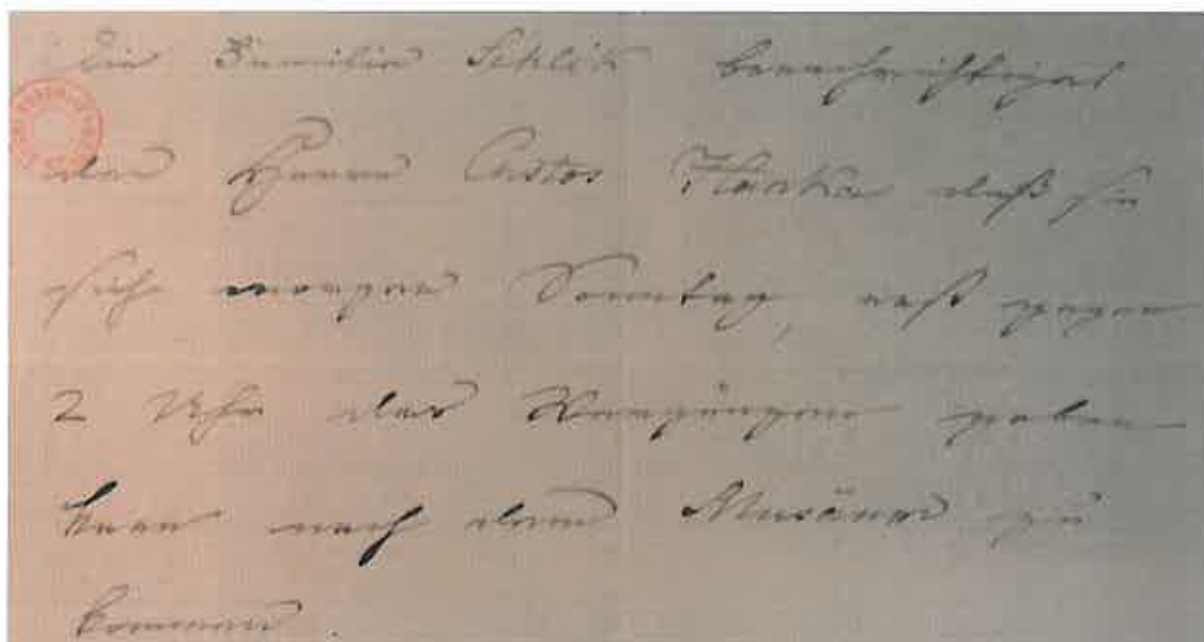 Die Familie Schlik benachrichtiget
den Herrn Custos Hanka daß sie
sich morgen Sonntag, erst gegen
2 Uhr das Vergnügen geben
kann nach dem Museum zu
kommen.